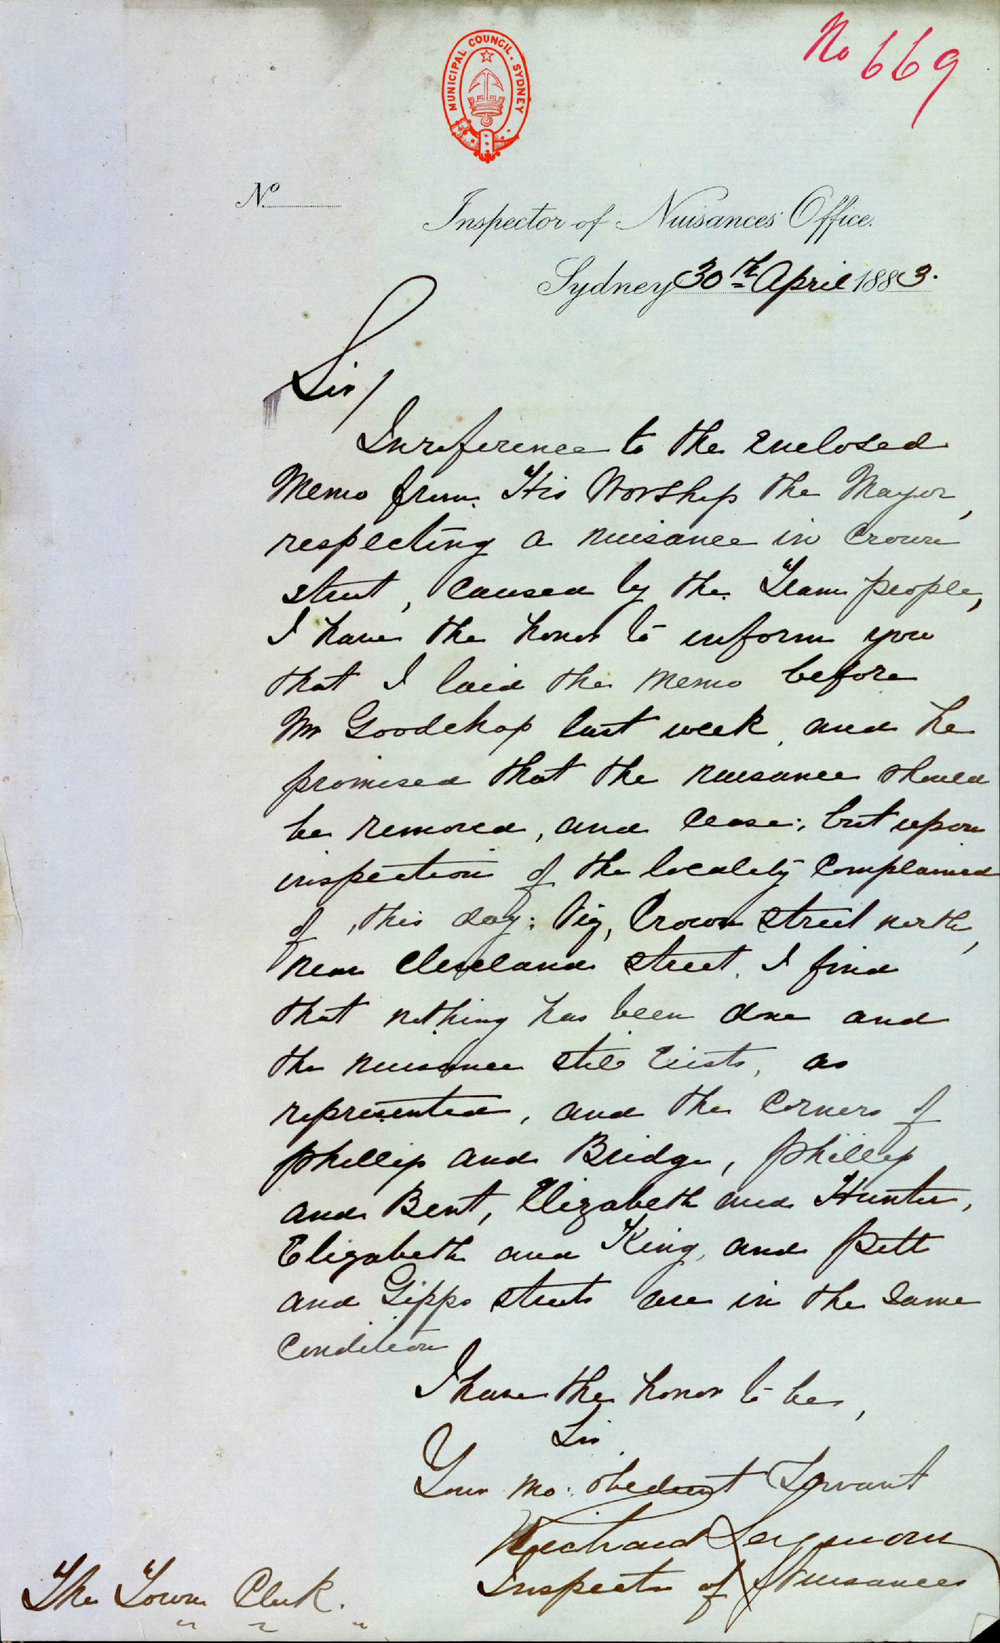 No 669
MUNICIPAL COUNCIL. SYDNEY
No.
Inspector of Nuisances' Office.
Sydney 30th April 1883.
Sir/
In reference to the enclosed
Memo from His Worship the Mayor,
respecting a nuisance in Crown
street, caused by the Tram people,
I have the honor to inform you
that I laid the Memo before
Mr Goodchap last week, and he
promised that the nuisance should
be removed, and cease; but upon
inspection of the locality complained
of, this day: Viz, Crown street north,
near Cleveland street, I find
that nothing has been done and
the nuisance still exists, as
represented, and the corners of
Phillip and Bridge, Phillip
and Bent, Elizabeth and Hunter,
Elizabeth and King, and Pitt
and Gipps streets are in the same
condition
I have the honor to be,
Sir
Your mo: obedient Servant
Richard Seymour
Inspector of Nuisances
The Town Clerk.